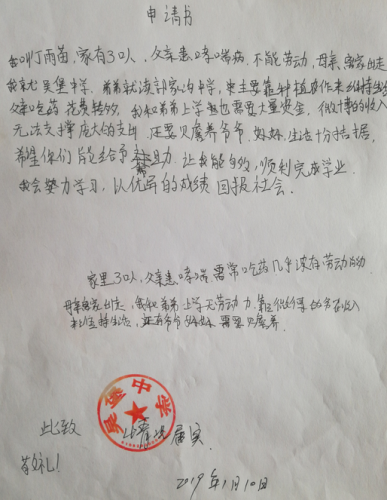 申请书
我叫丁雨苗,家有3口人,父亲患哮喘病,不能劳动,母亲离家出走
我就读吴堡中学,弟弟就读郭家沟中学,主要靠种植农作来维持生活
父亲吃药花费较多,我和弟弟上学也需要大量资金,微博的收入
无法支撑庞大的支出,还要赡养爷爷奶奶,生活十分拮据,
希望你们能给予帮助,让我能够,顺利完成学业,
我会努力学习,以优异的成绩回报社会.
家里3口人,父亲患哮喘需常吃药几乎没有劳动能力
母亲离家出走,我和弟弟上学无劳动力,靠微薄的务农收入
来维持生活,还有爷爷奶奶需要赡养.
吴堡中学
此致
以上情况属实
敬礼!
2019年1月10日